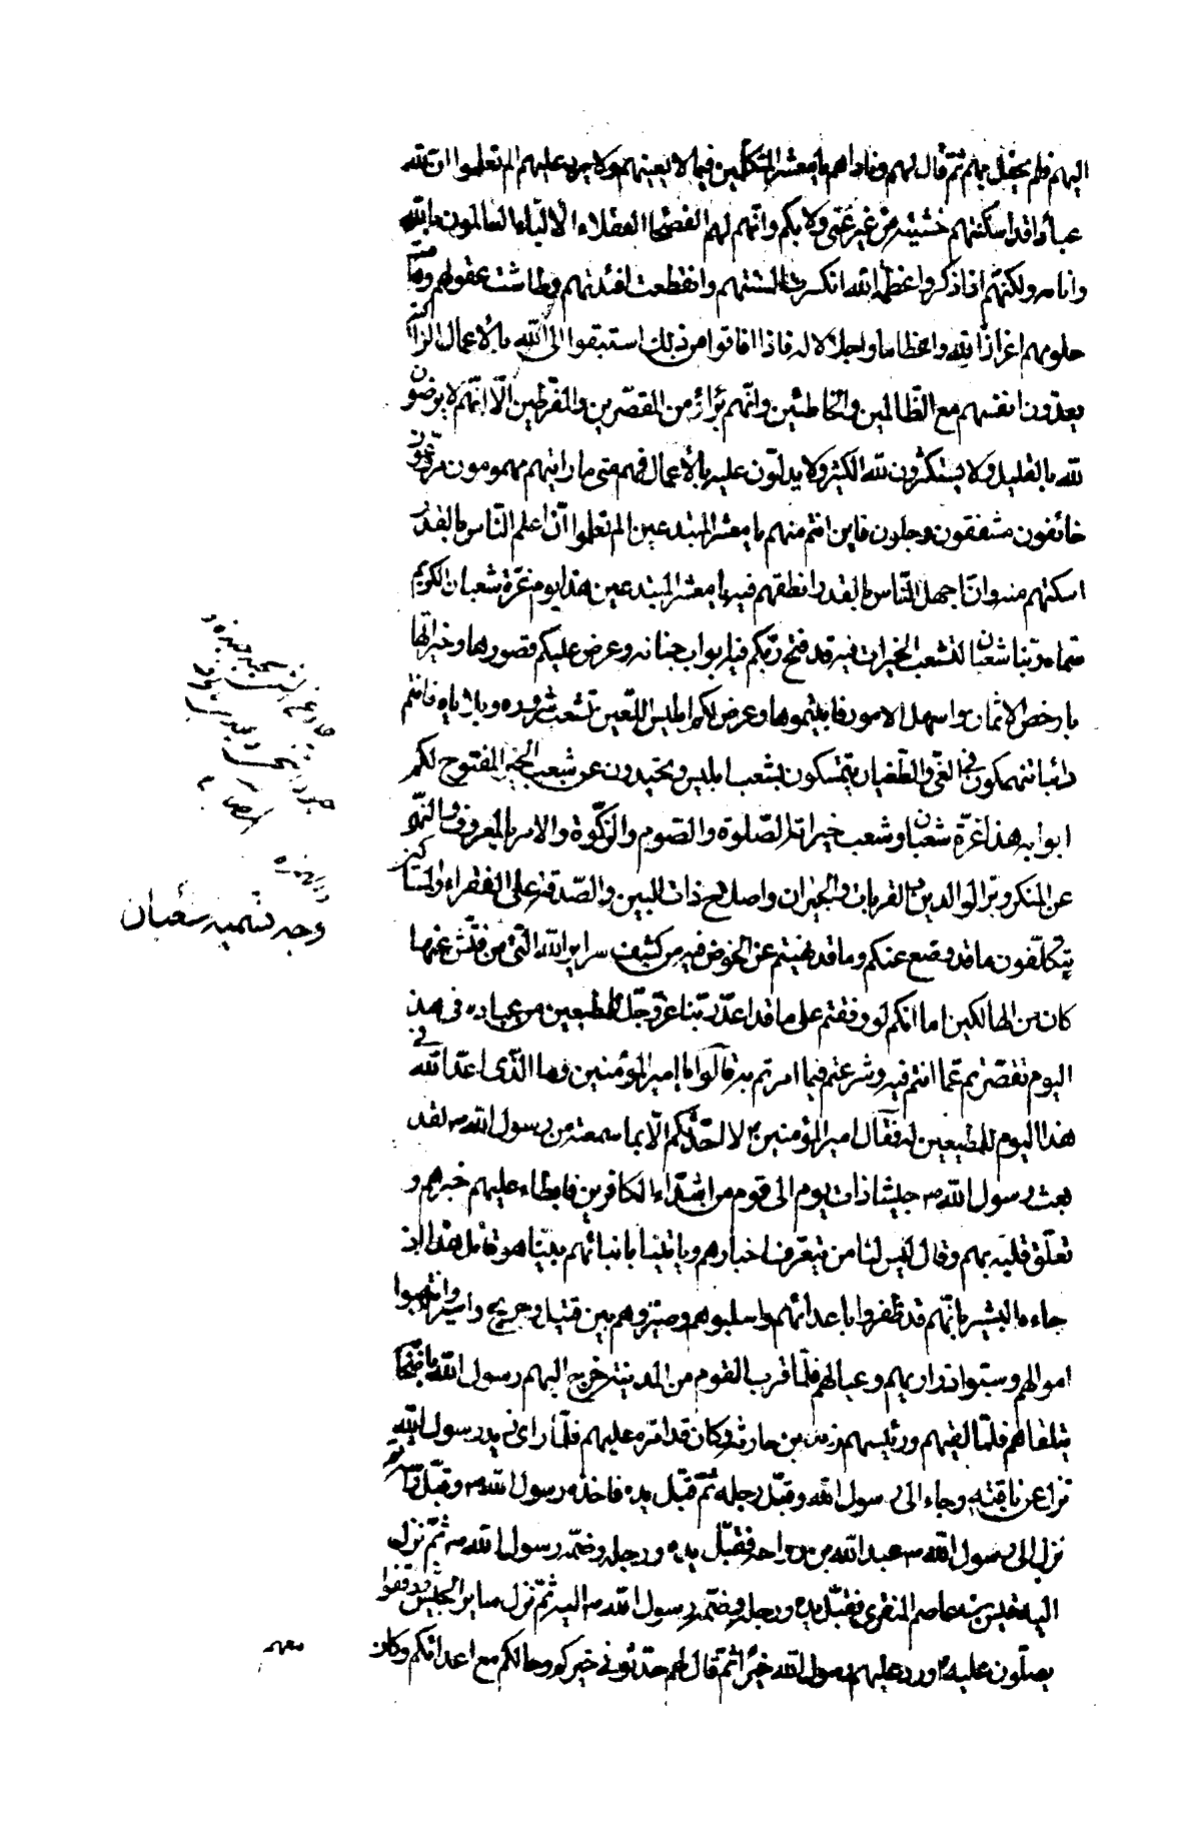 اليهم فلم يحفل بهم ثم قال لهم وناداهم يا معشر المتكلمين فيما لا يعنيهم ولا يرد عليهم الم تعلموا ان لله
عبادا قد اسكتتهم خشيته من غير عى ولا بكم وانهم لهم الفصحا العقلاء الالباء العالمون بالله
وايامه ولكنهم اذا ذكروا عظمة الله انكسرت السنتهم وانقطعت افئدتهم وطاشت عقولهم وهامت
حلومهم اعزازا لله واعظاما واجلالا له فاذا افاقوا من ذلك استبقوا الى الله بالاعمال الزاكية
يعدون انفسهم مع الظالمين والخاطئين وانهم براء من المقصرين والمفرطين الا انهم لا يرضون
لله بالقليل ولا يستكثرون لله الكثير ولا يدلون عليه بالاعمال فهم متى ما رايتهم مهمومون مروعون
خائفون مشفقون وجلون فاين انتم منهم يا معشر المبتدعين الم تعلموا ان اعلم الناس بالقدر
اسكتهم منه وان اجهل الناس بالقدر انطقهم فيه يا معشر المبتدعين هذا يوم غرة شعبان الكريم
سماه ربنا شعبان لتشعب الخيرات فيه قد فتح ربكم فيه ابواب جنانه وعرض عليكم قصورها وخيراتها
بارخص الاثمان واسهل الامور فابيتموها وعرض لكم ابليس اللعين بشعب شروره وبلاياه فانتم
دائبا تنهمكون في الغى والطغيان تتمسكون بشعب ابليس وتحيدون عن شعب الخير المفتوح لكم
ابوابه هذا غرة شعبان وشعب خيراته الصلوة والصوم والزكوة والامر بالمعروف والنهى
عن المنكر وبر الوالدين والقرابات والجيران واصلاح ذات البين والصدقة على الفقراء والمساكين
تتكلفون ما قد وضع عنكم وما قد نهيتم عن الخوض فيه من كشف سراير الله التى من فتش عنها
كان من الهالكين اما انكم لو وقفتم على ما قد اعد ربنا عز وجل للمطيعين من عباده فى هذا
اليوم لقصرتم عما انتم فيه وشرعتم فيما امرتم به قالوا يا امير المؤمنين وما الذى اعد الله فى
هذا اليوم للمطيعين له فقال امير المؤمنين لا احدثكم الا بما سمعته من رسول الله ص لقد
بعث رسول الله ص جيشا ذات يوم الى قوم من اشداء الكافرين فابطاء عليهم خبرهم و
تعلق قلبه بهم وقال ليس لنا من يتعرف اخبارهم وياتينا بانبائهم بينا هو قائل هذا اذ
جاءه البشير بانهم قد ظفروا باعدائهم واسلبوهم وصيروهم بين قتيل وجريح واسير وانتهبوا
اموالهم وسبوا ذراريهم وعيالهم فلما قرب القوم من المدينة خرج اليهم رسول الله باصحابه
يتلقاهم فلما لقيهم ورئيسهم زيد بن حارثة وكان قد امره عليهم فلما راى زيد رسول الله
نزل عن ناقته وجاء الى رسول الله وقبل رجله ثم قبل يده فاخذه رسول الله ص وقبل راسه ثم
نزل الى رسول الله ص عبد الله بن رواحة فقبل يده ورجله وضمه رسول الله ص ثم نزل
اليه قيس بن عاصم المنقرى فقبل يده ورجله وضمه رسول الله ص اليه ثم نزل ساير الجيش ووقفوا
يصلون عليه ورد عليهم رسول الله خيرا ثم قال لهم حدثونى خبركم وحالكم مع اعدائكم وكان
معهم
وجه تسمية شعبان